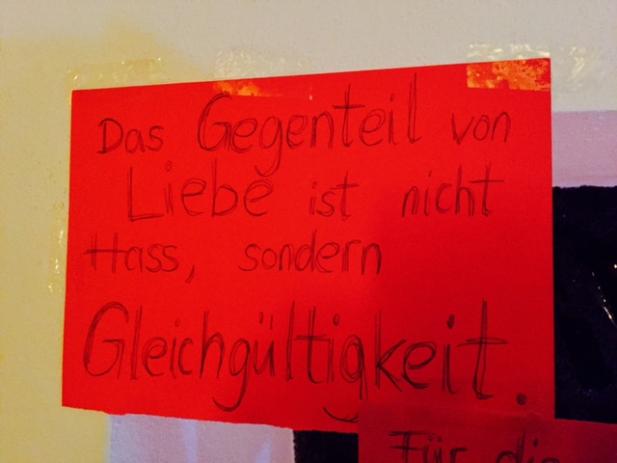 Das Gegenteil von
Liebe ist nicht
Hass, sondern
Gleichgültigkeit.
Für die